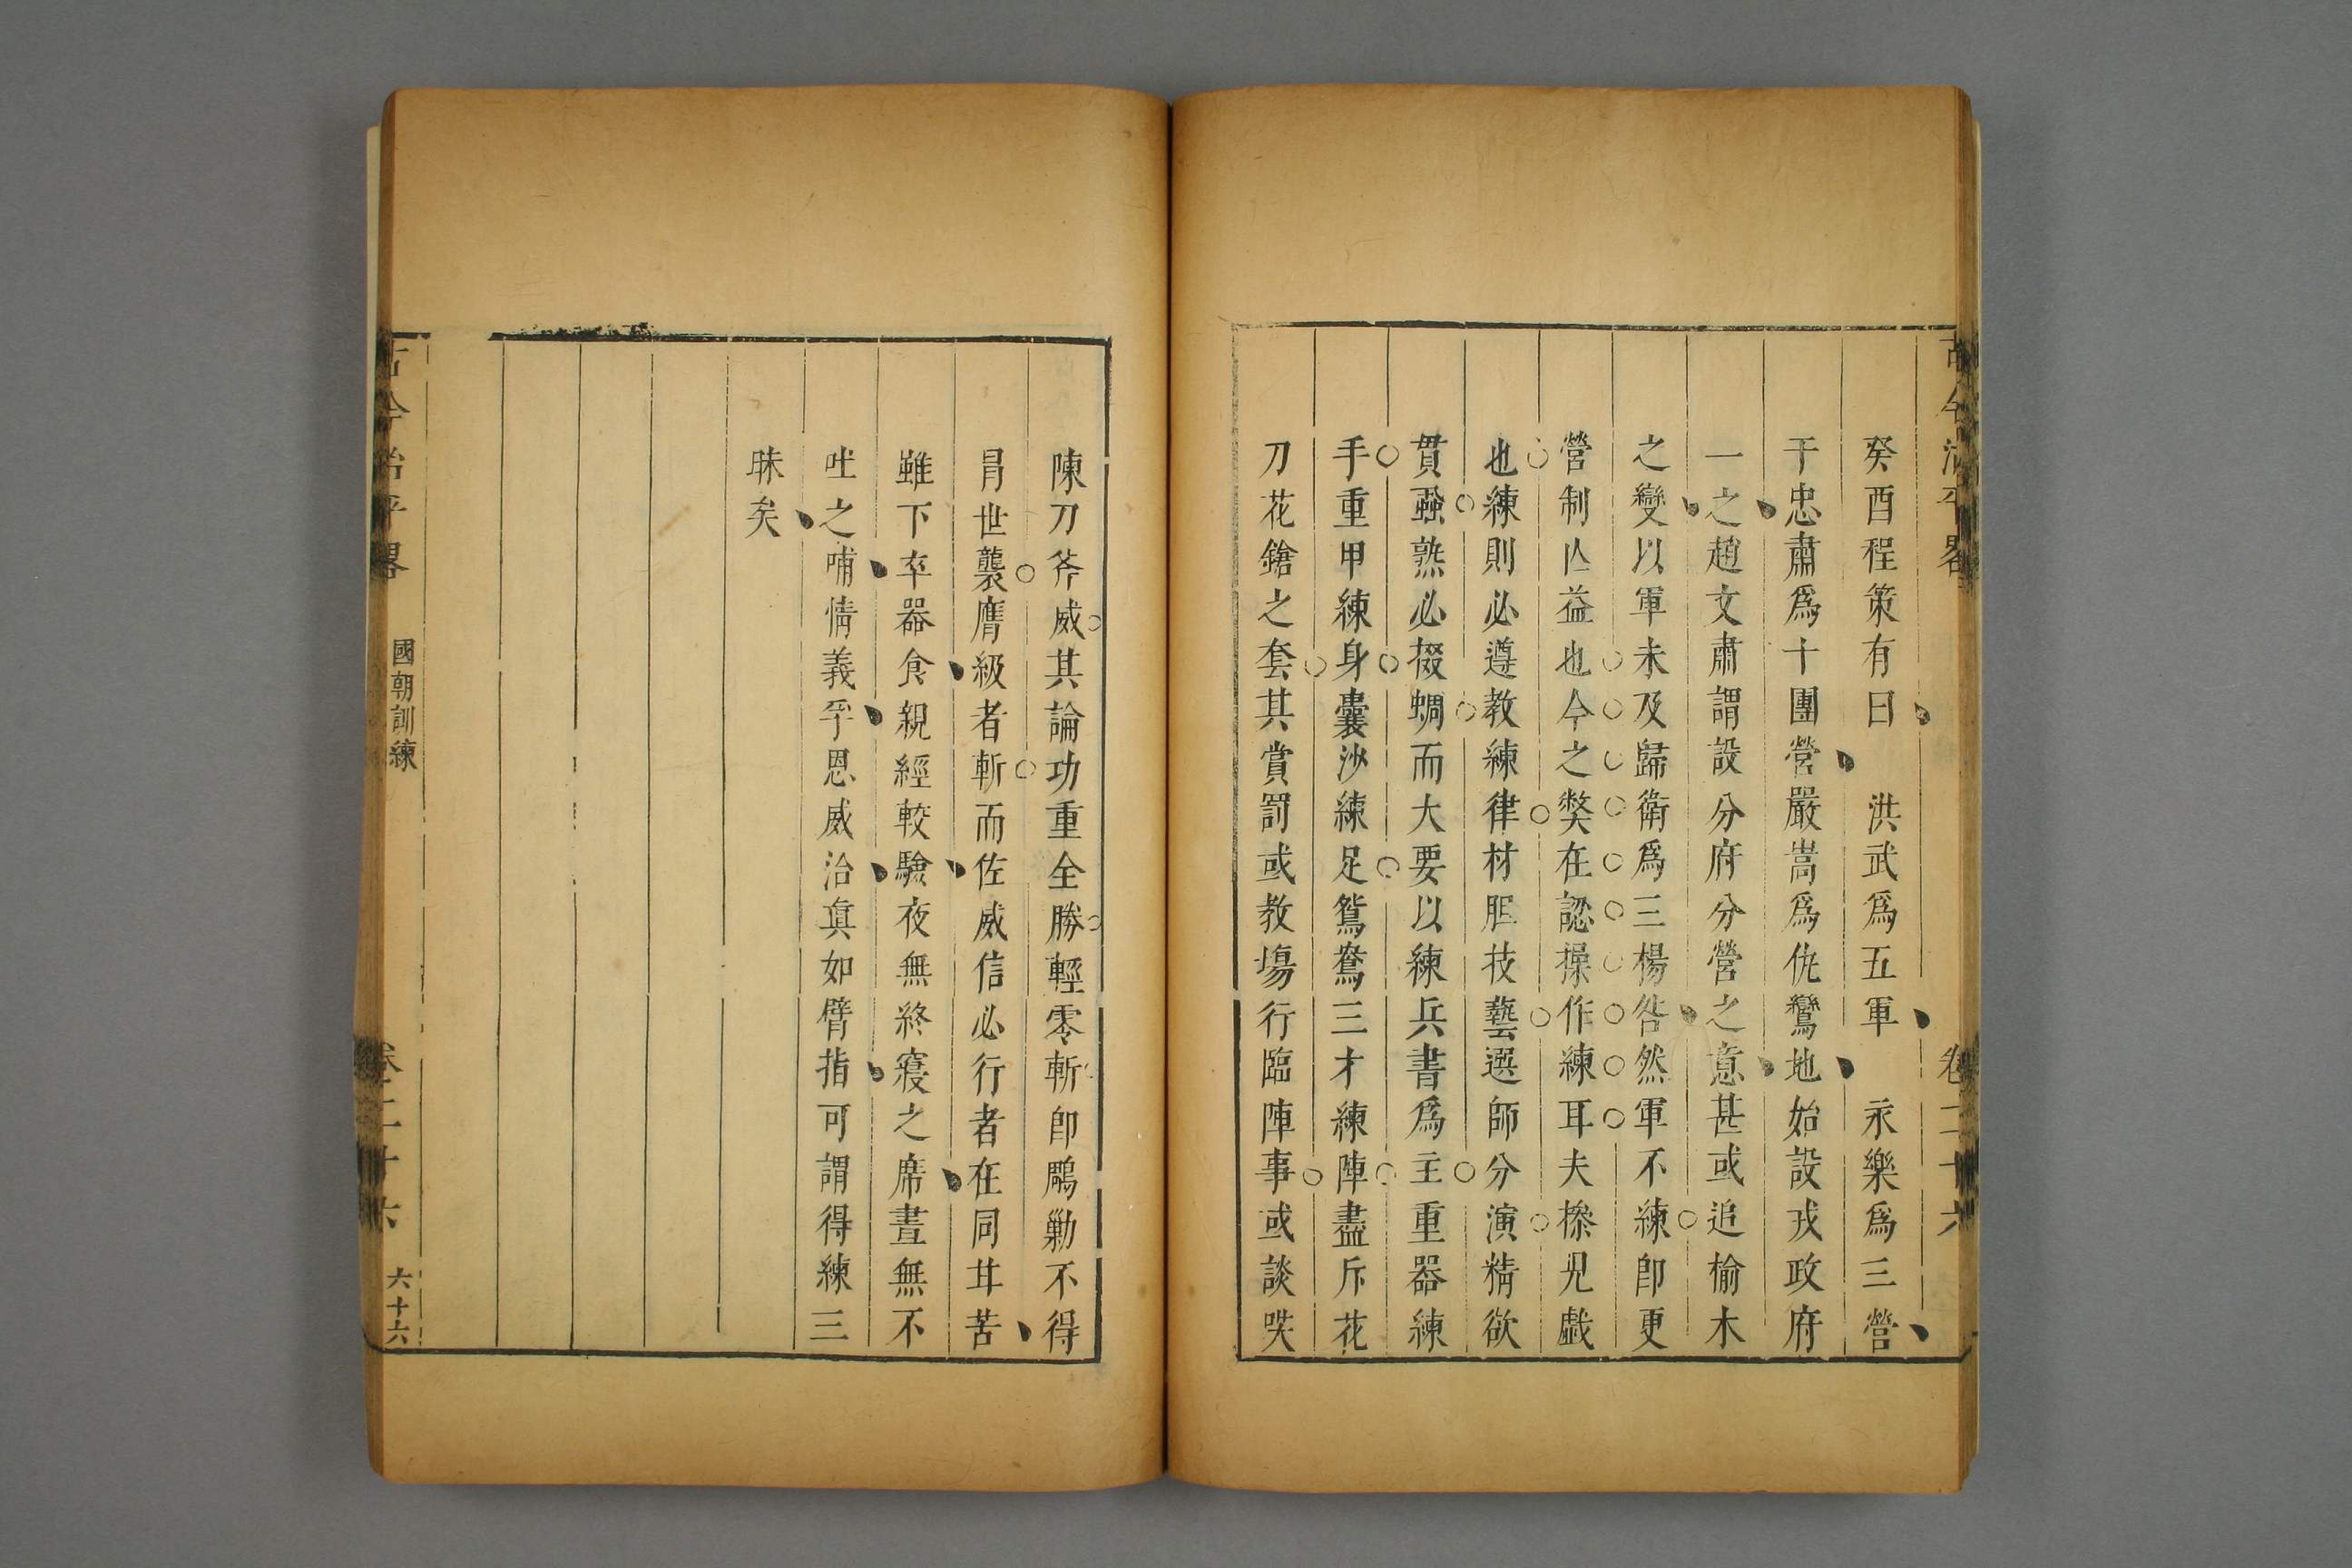 古今治平畧 卷二十六
癸酉程策有曰 洪武爲五軍 永樂爲三營
干忠肅爲十團營嚴嵩爲仇鸞地始設戎政府
一之趙文肅謂設分府分營之意甚或追楡木
之變以軍未及歸衛爲三楊咎然軍不練卽更
營制亾益也今之獘在認操作練耳夫橾兒戯
也練則必遵教練律材胆技藝選師分演精欲
貫強熟必掇蜩而大要以練兵書爲主重器練
手重甲練身囊沙練足鴛鴦三才練陣盡斥花
刀花鎗之套其賞罰或教場行臨陣事或談咲
陳刀斧威其論功重全勝輕零斬卽鵰勦不得
冒世襲膺級者斬而佐威信必行者在同甘苦
雖下卒器食親經較驗夜無終寢之席晝無不
吐之哺情義孚恩威治眞如臂指可謂得練三
昧矣
古今治平畧 國朝訓練 卷二十六 六十六